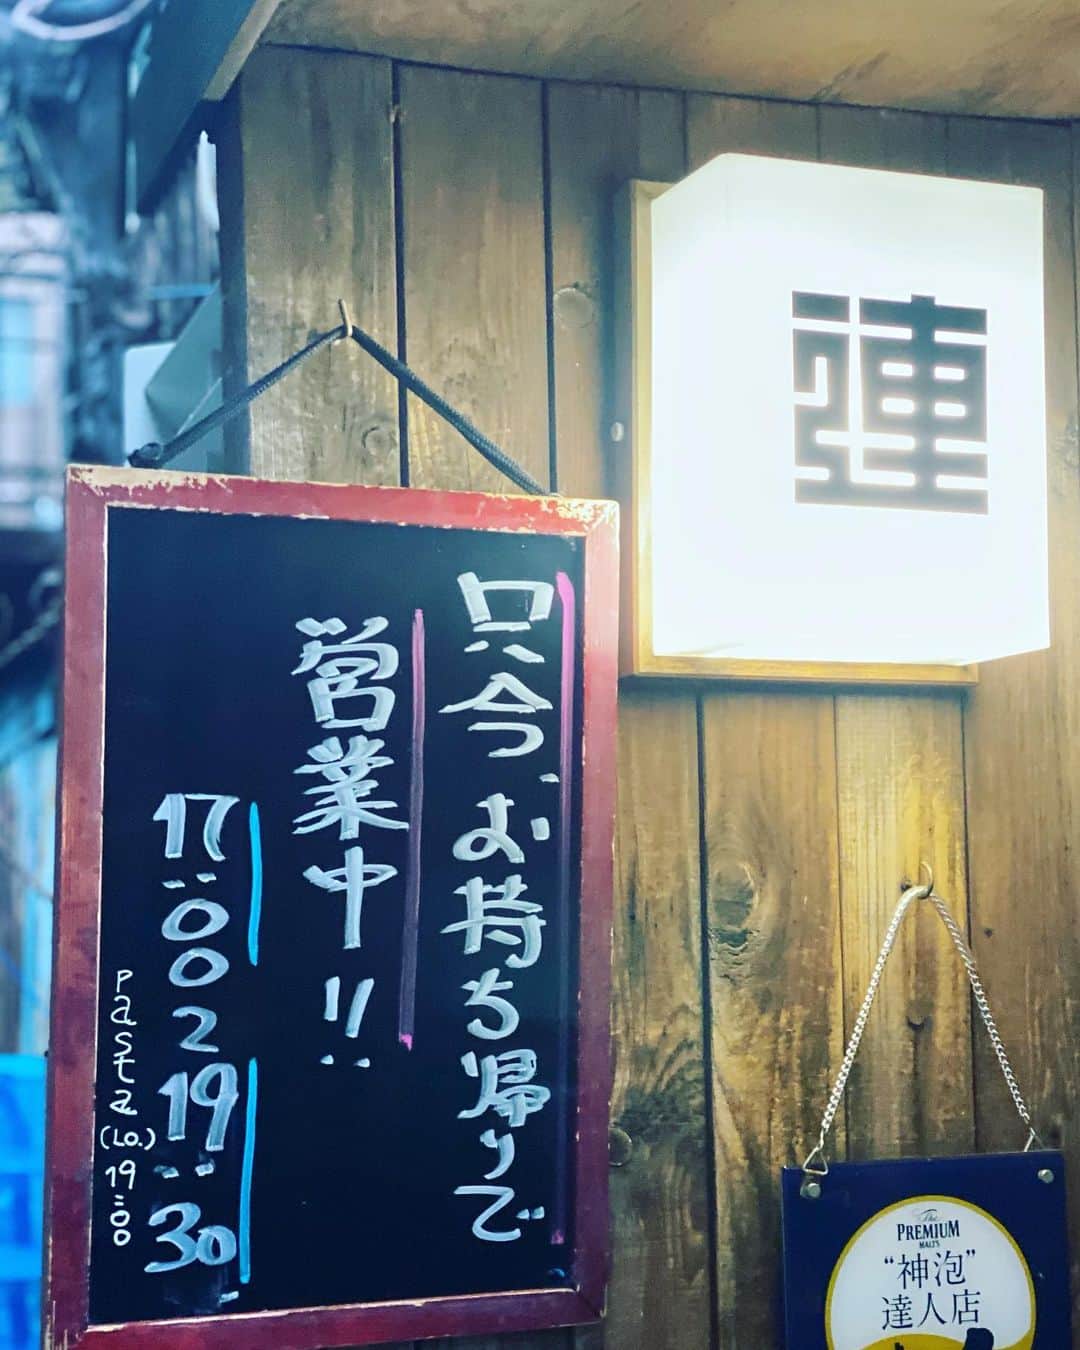 連
只今、お持ち帰りで
営業中!!
17:00〜19:30
Pasta(LO.)19:00
The
PREMIUM
MALT'S
“神泡”
達人店